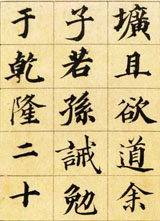 壙且欲道余
子若孫誡勉
于乾隆二十